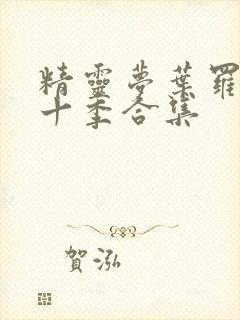 精靈夢葉羅
十季合集
賀泓